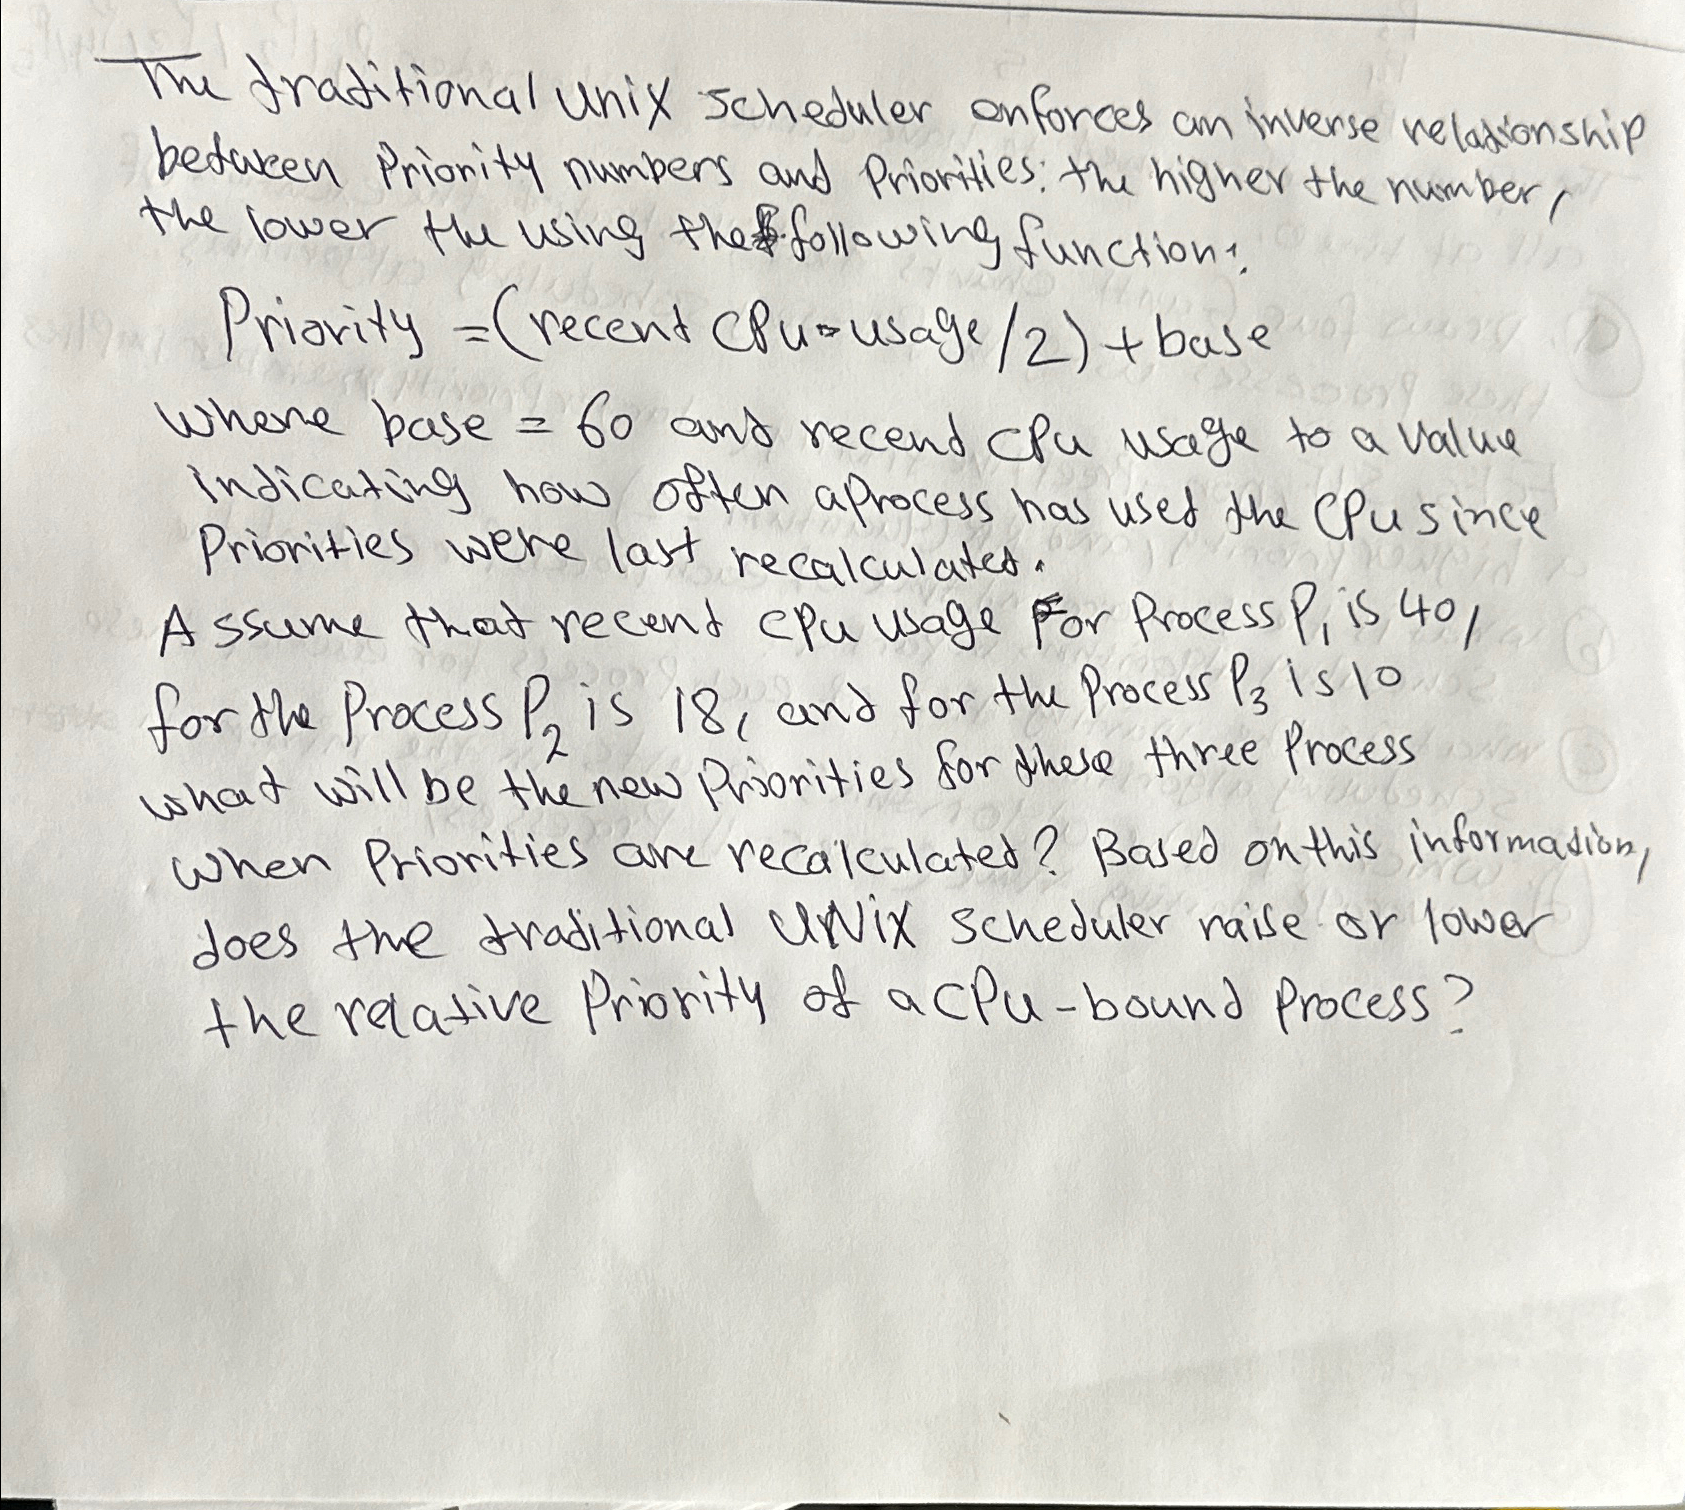 The traditional Unix scheduler enforces an inverse relationship
between Priority numbers and Priorities: the higher the number,
the lower the using the following function:
Priority = (recent CPU-usage/2) + base
where base = 60 and recent CPU usage to a value
indicating how often a process has used the CPU since
Priorities were last recalculated.
Assume that recent CPU usage For Process P1 is 40,
for the Process P2 is 18, and for the Process P3 is 10
what will be the new Priorities for these three Process
when Priorities are recalculated? Based on this information,
does the traditional UNIX scheduler raise or lower
the relative Priority of a CPU-bound Process?